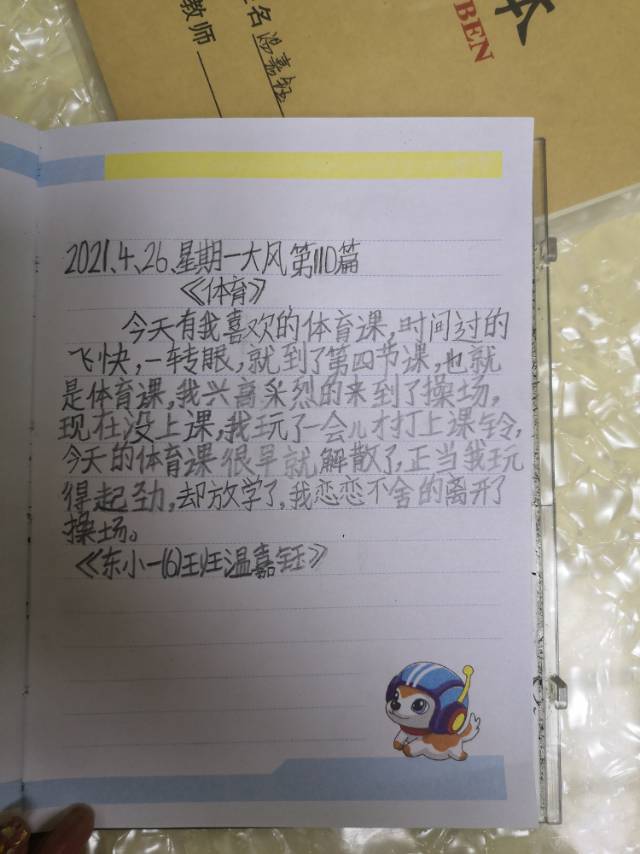 本
BEN
姓名温嘉钰
教师
2021.4.26.星期一大风第110篇
《体育》
今天有我喜欢的体育课,时间过的
飞快,一转眼,就到了第四节课,也就
是体育课,我兴高采烈的来到了操场,
现在没上课,我玩了一会儿才打上课铃,
今天的体育课很早就解散了,正当我玩
得起劲,却放学了,我恋恋不舍的离开了
操场。
《东小一(6)班温嘉钰》